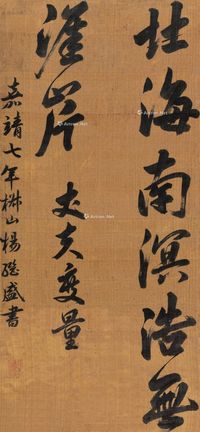 北海南溟浩無
涯岸 丈夫度量
嘉靖七年椒山楊繼盛書